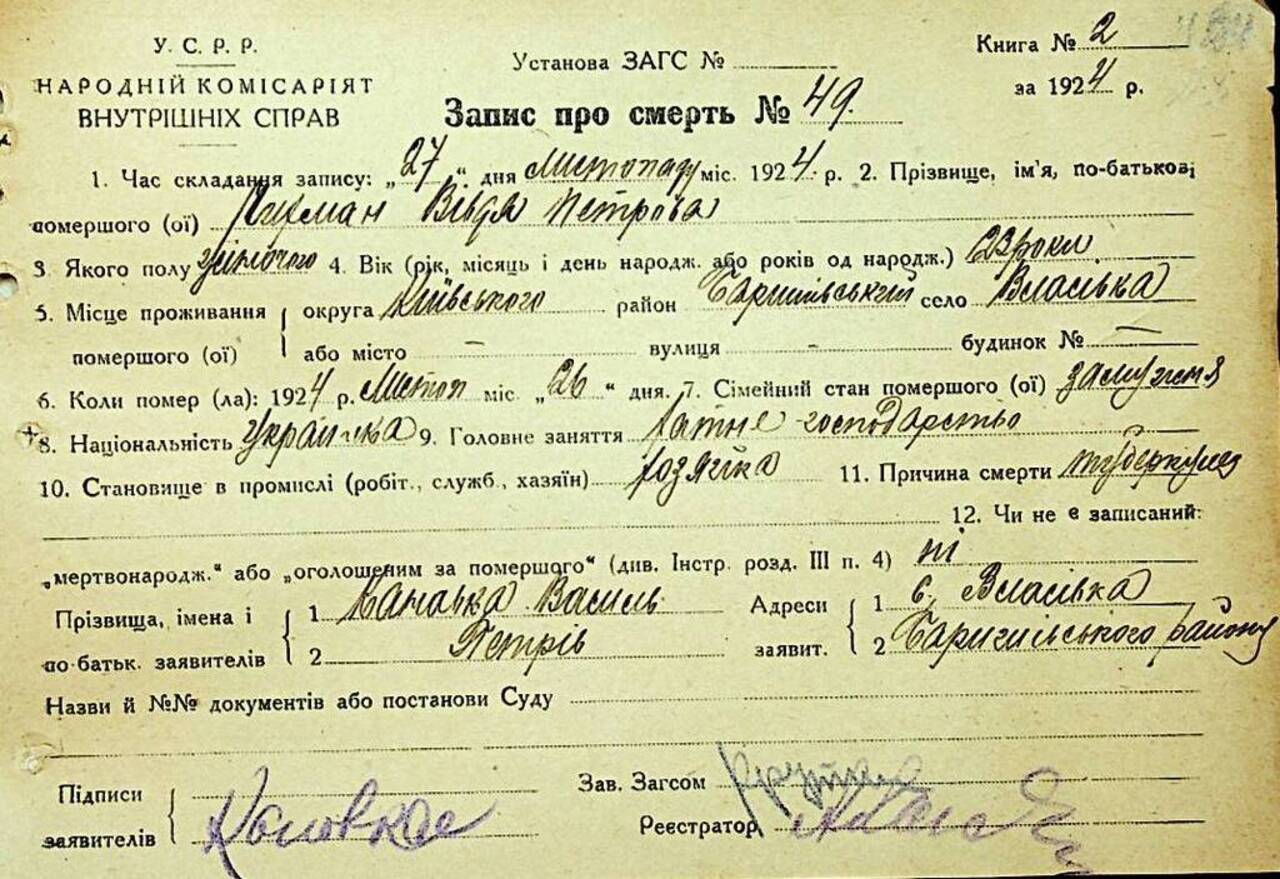 У. С. Р. Р.
НАРОДНІЙ КОМІСАРІЯТ
ВНУТРІШНІХ СПРАВ
Установа ЗАГС №
Книга № 2
за 1924 р.
Запис про смерть № 49.
1. Час складання запису: „27“ дня Листопаду міс. 1924 р. 2. Прізвище, ім'я, по-батькові
помершого (ої) Петрова
3. Якого полу жіночого 4. Вік (рік, місяць і день народж. або років од народж.) роки.
5. Місце проживання округа Київського район Баришільський село Власівка
помершого (ої) або місто – вулиця – будинок № —
6. Коли помер (ла): 1924 р. Листоп міс. „26“ дня. 7. Сімейний стан помершого (ої) замужня
8. Національність Українка 9. Головне заняття хатне господарство
10. Становище в промислі (робіт., служб., хазяїн) хозяйка 11. Причина смерти туберкулез
12. Чи не є записаний:
„мертвонародж.“ або „оголошеним за помершого“ (див. Інстр. розд. III п. 4) ні
Прізвища, імена і по батьк. заявителів 1 Василь
2 Петрів
Адреси заявит. 1 с. Власівка
2 Баришільського району
Назви й №№ документів або постанови Суду
Підписи
заявителів
Зав. Загсом
Реєстратор